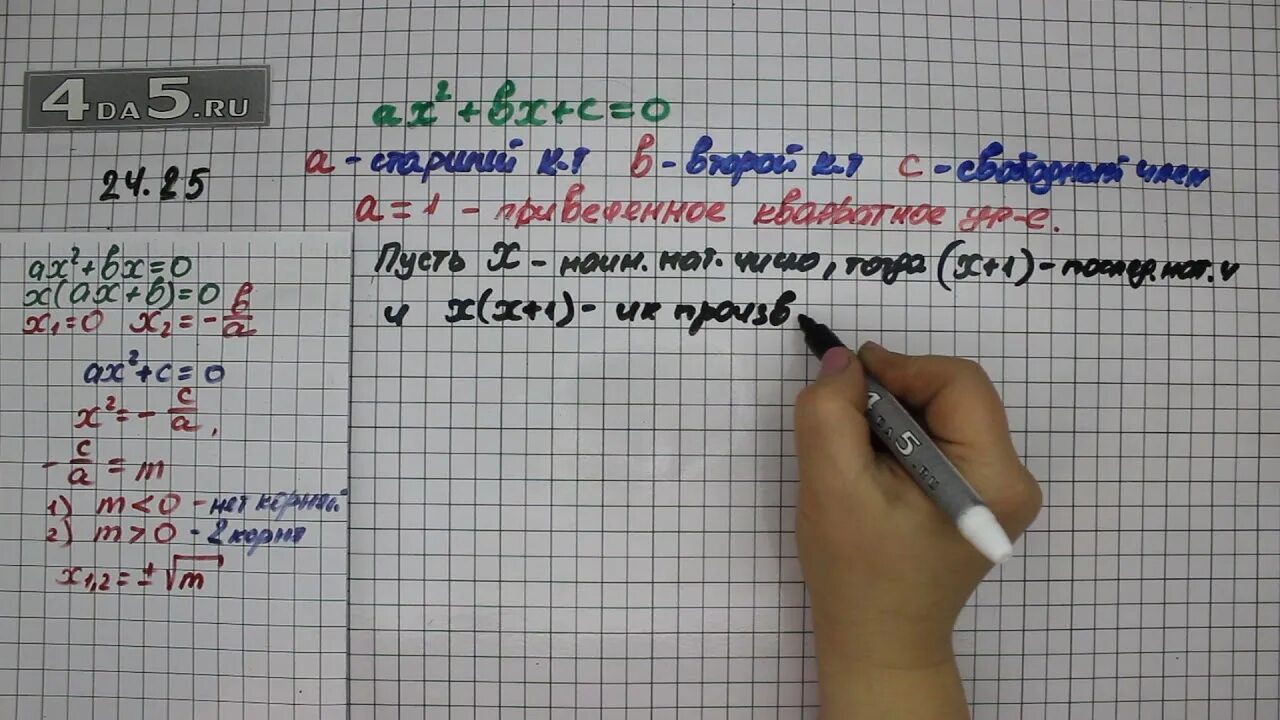 4DA5.RU
24.25
ax²+bx+c=0
a - старший к.т b - второй к.т c - свободный член
a=1 - приведенное квадратное ур-е.
Пусть x - наим. нат. число, тогда (x+1) - послед. нат. ч
и x(x+1) - их произв
ax²+bx=0
x(ax+b)=0
x₁=0 x₂=-b/a
ax²+c=0
x²=-c/a,
-c/a=m
1) m<0 - нет корней
2) m>0 - 2 корня
x₁,₂=±√m
4DA5.RU